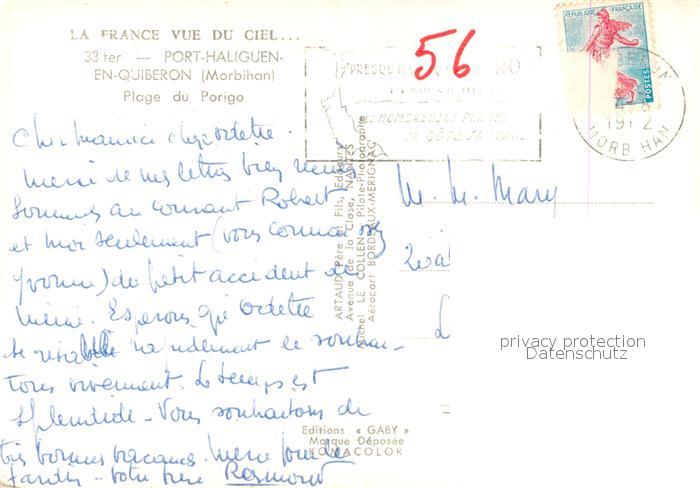 LA FRANCE VUE DU CIEL...
33 ter — PORT-HALIGUEN-
EN-QUIBERON (Morbihan)
Plage du Porigo
56
PRESQU'
NOMBREUSES PLAGES
SA CÔTE SAUVAGE
REPUBLIQUE FRANÇAISE
POSTES
MORBIHAN
Cher Maurice chère Odette.
Merci de vos lettres bien reçues
Sommes au courant Robert
et moi seulement (vous connaissez
Yvonne) du petit accident de
même. Espérons que Odette
se rétablit rapidement le souhai-
tons vivement. Le temps est
splendide - Vous souhaitons de
très bonnes vacances.
votre frère Raymond
ARTAUD Père et Fils, Editeurs
Avenue de la Close, NANTES
Michel LE COLLEN, Pilote-Photographe
Aéroport BORDEAUX-MERIGNAC
M. M. Mary
Editions « GABY »
Marque Déposée
SOMACOLOR
privacy protection
Datenschutz